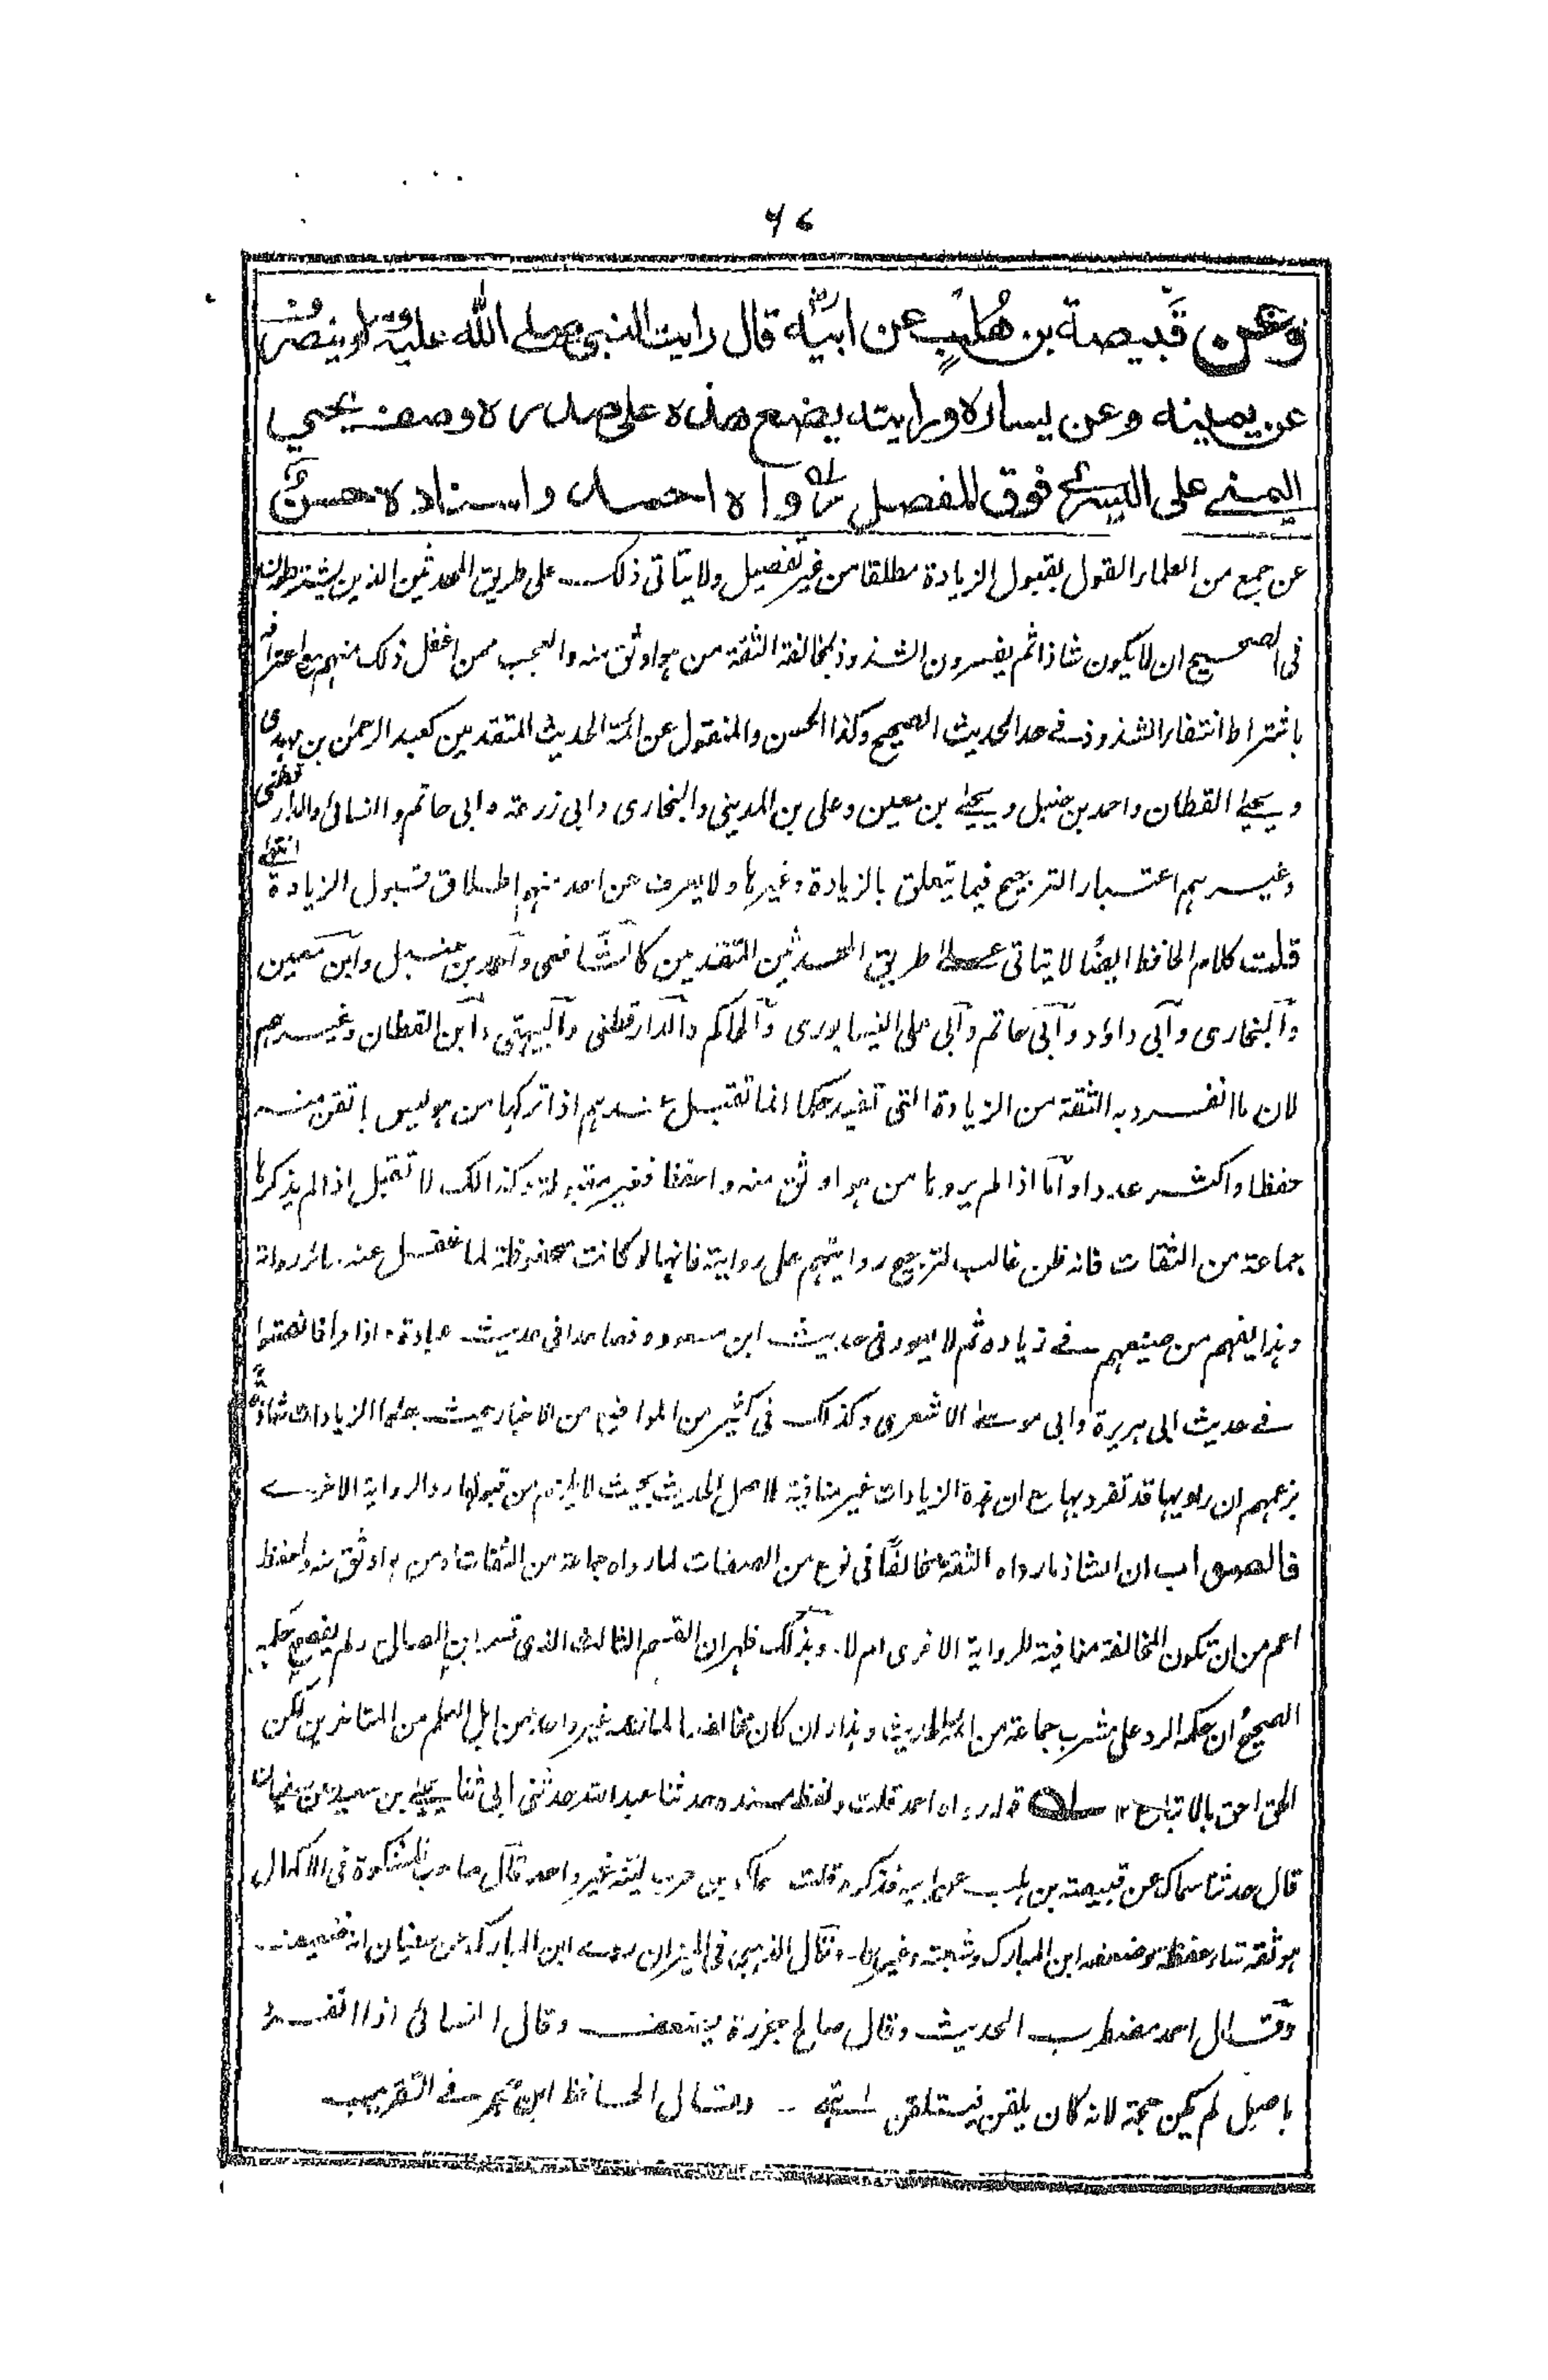 ۶۷
وعن قَبيصة بن هُلبٍ عن ابيه رض قال رايت النبي صلى الله عليه وسلم ينصرف
عن يمينه وعن يساره ورايته يضع هذه على صدره وصف يحيى
اليمنى على اليسرى فوق المفصل رواه احمد واسناده حسن
عن جمع من العلماء القول بقبول الزيادة مطلقا من غير تفصيل ولا يتاتى ذلك على طريق المحدثين الذين يشترطون
فى الصحيح ان لا يكون شاذا ثم يفسرون الشذوذ بمخالفة الثقة من هو اوثق منه والعجب ممن اغفل ذلك منهم مع اعترافه
باشتراط انتفاء الشذوذ فى حد الحديث الصحيح وكذا الحسن والمنقول عن ائمة الحديث المتقدمين كعبد الرحمٰن بن مهدى
ويحيى القطان واحمد بن حنبل ويحيى بن معين وعلى بن المدينى والبخارى وابى زرعة وابى حاتم والنسائى والدارقطنى
وغيرهم اعتبار الترجيح فيما يتعلق بالزيادة وغيرها ولا يعرف عن احد منهم اطلاق قبول الزيادة انتهى
قلت كلام الحافظ ايضًا لا يتاتى على طريق المحدثين المتقدمين كالشافعى واحمد بن حنبل وابن معين
والبخارى وابى داؤد وابى حاتم وابى على النيسابورى والحاكم والدارقطنى والبيهقى وابن القطان وغيرهم
لان ما انفرد به الثقة من الزيادة التى تفيد حكما انما تقبل عندهم اذا تركها من هو ليس باتقن منه
حفظا واكثر عددا واما اذا لم يروها من هو اوثق منه واحفظ فغير مقبولة وكذالك لا تقبل اذا لم يذكرها
جماعة من الثقات فانه ظن غالب لترجيح روايتهم على روايته فانها لو كانت محفوظة لما غفل عنه سائر رواته
وهذا يفهم من صنيعهم فى زيادة ثم لا يعود فى حديث ابن مسعود وفصاعدا فى حديث عبادة واذا قرأ فانصتوا
فى حديث ابى هريرة وابى موسى الاشعرى وكذلك فى كثير من المواضع من الاخبار بحيث جعلوا الزيادات شاذة
بزعمهم ان راويها قد تفرد بها مع ان هذه الزيادات غير منافية لاصل الحديث بحيث لا يلزم من قبولها رد الرواية الاخرى
فالصواب ان الشاذ ما رواه الثقة مخالفًا فى نوع من الصفات لما رواه جماعة من الثقات او من هو اوثق منه واحفظ
اعم من ان تكون المخالفة منافية للرواية الاخرى ام لا۔ وبذلك ظهر ان القسم الثالث الذى فسر ابن الصلاح ولم يفصح بحكمه
الصحيح ان حكمه الرد على مشرب جماعة من ائمة الحديث وهذا وان كان مخالفا لما زعمه غير واحد من اهل العلم من المتاخرين لكن
الحق احق بالاتباع ۱۲ سلم قوله رواه احمد قلت ولفظ مسنده حدثنا عبد الله حدثنى ابى ثنا يحيى بن سعيد عن سفيان
قال حدثنا سماك عن قبيصة بن هلب عن ابيه فذكره قلت سماك بن حرب لينه غير واحد قال صاحب المشكوة فى الاكمال
هو ثقة ساء حفظه وضعفه ابن المبارك وشعبة وغيرهما۔ وقال الذهبى فى الميزان روى ابن المبارك عن سفيان انه ضعيف۔
وقال احمد مضطرب الحديث وقال صالح جزرة يضعف وقال النسائى اذا انفرد
باصل لم يكن حجة لانه كان يلقن فيتلقن انتهى ۔۔ وقال الحافظ ابن حجر فى التقريب